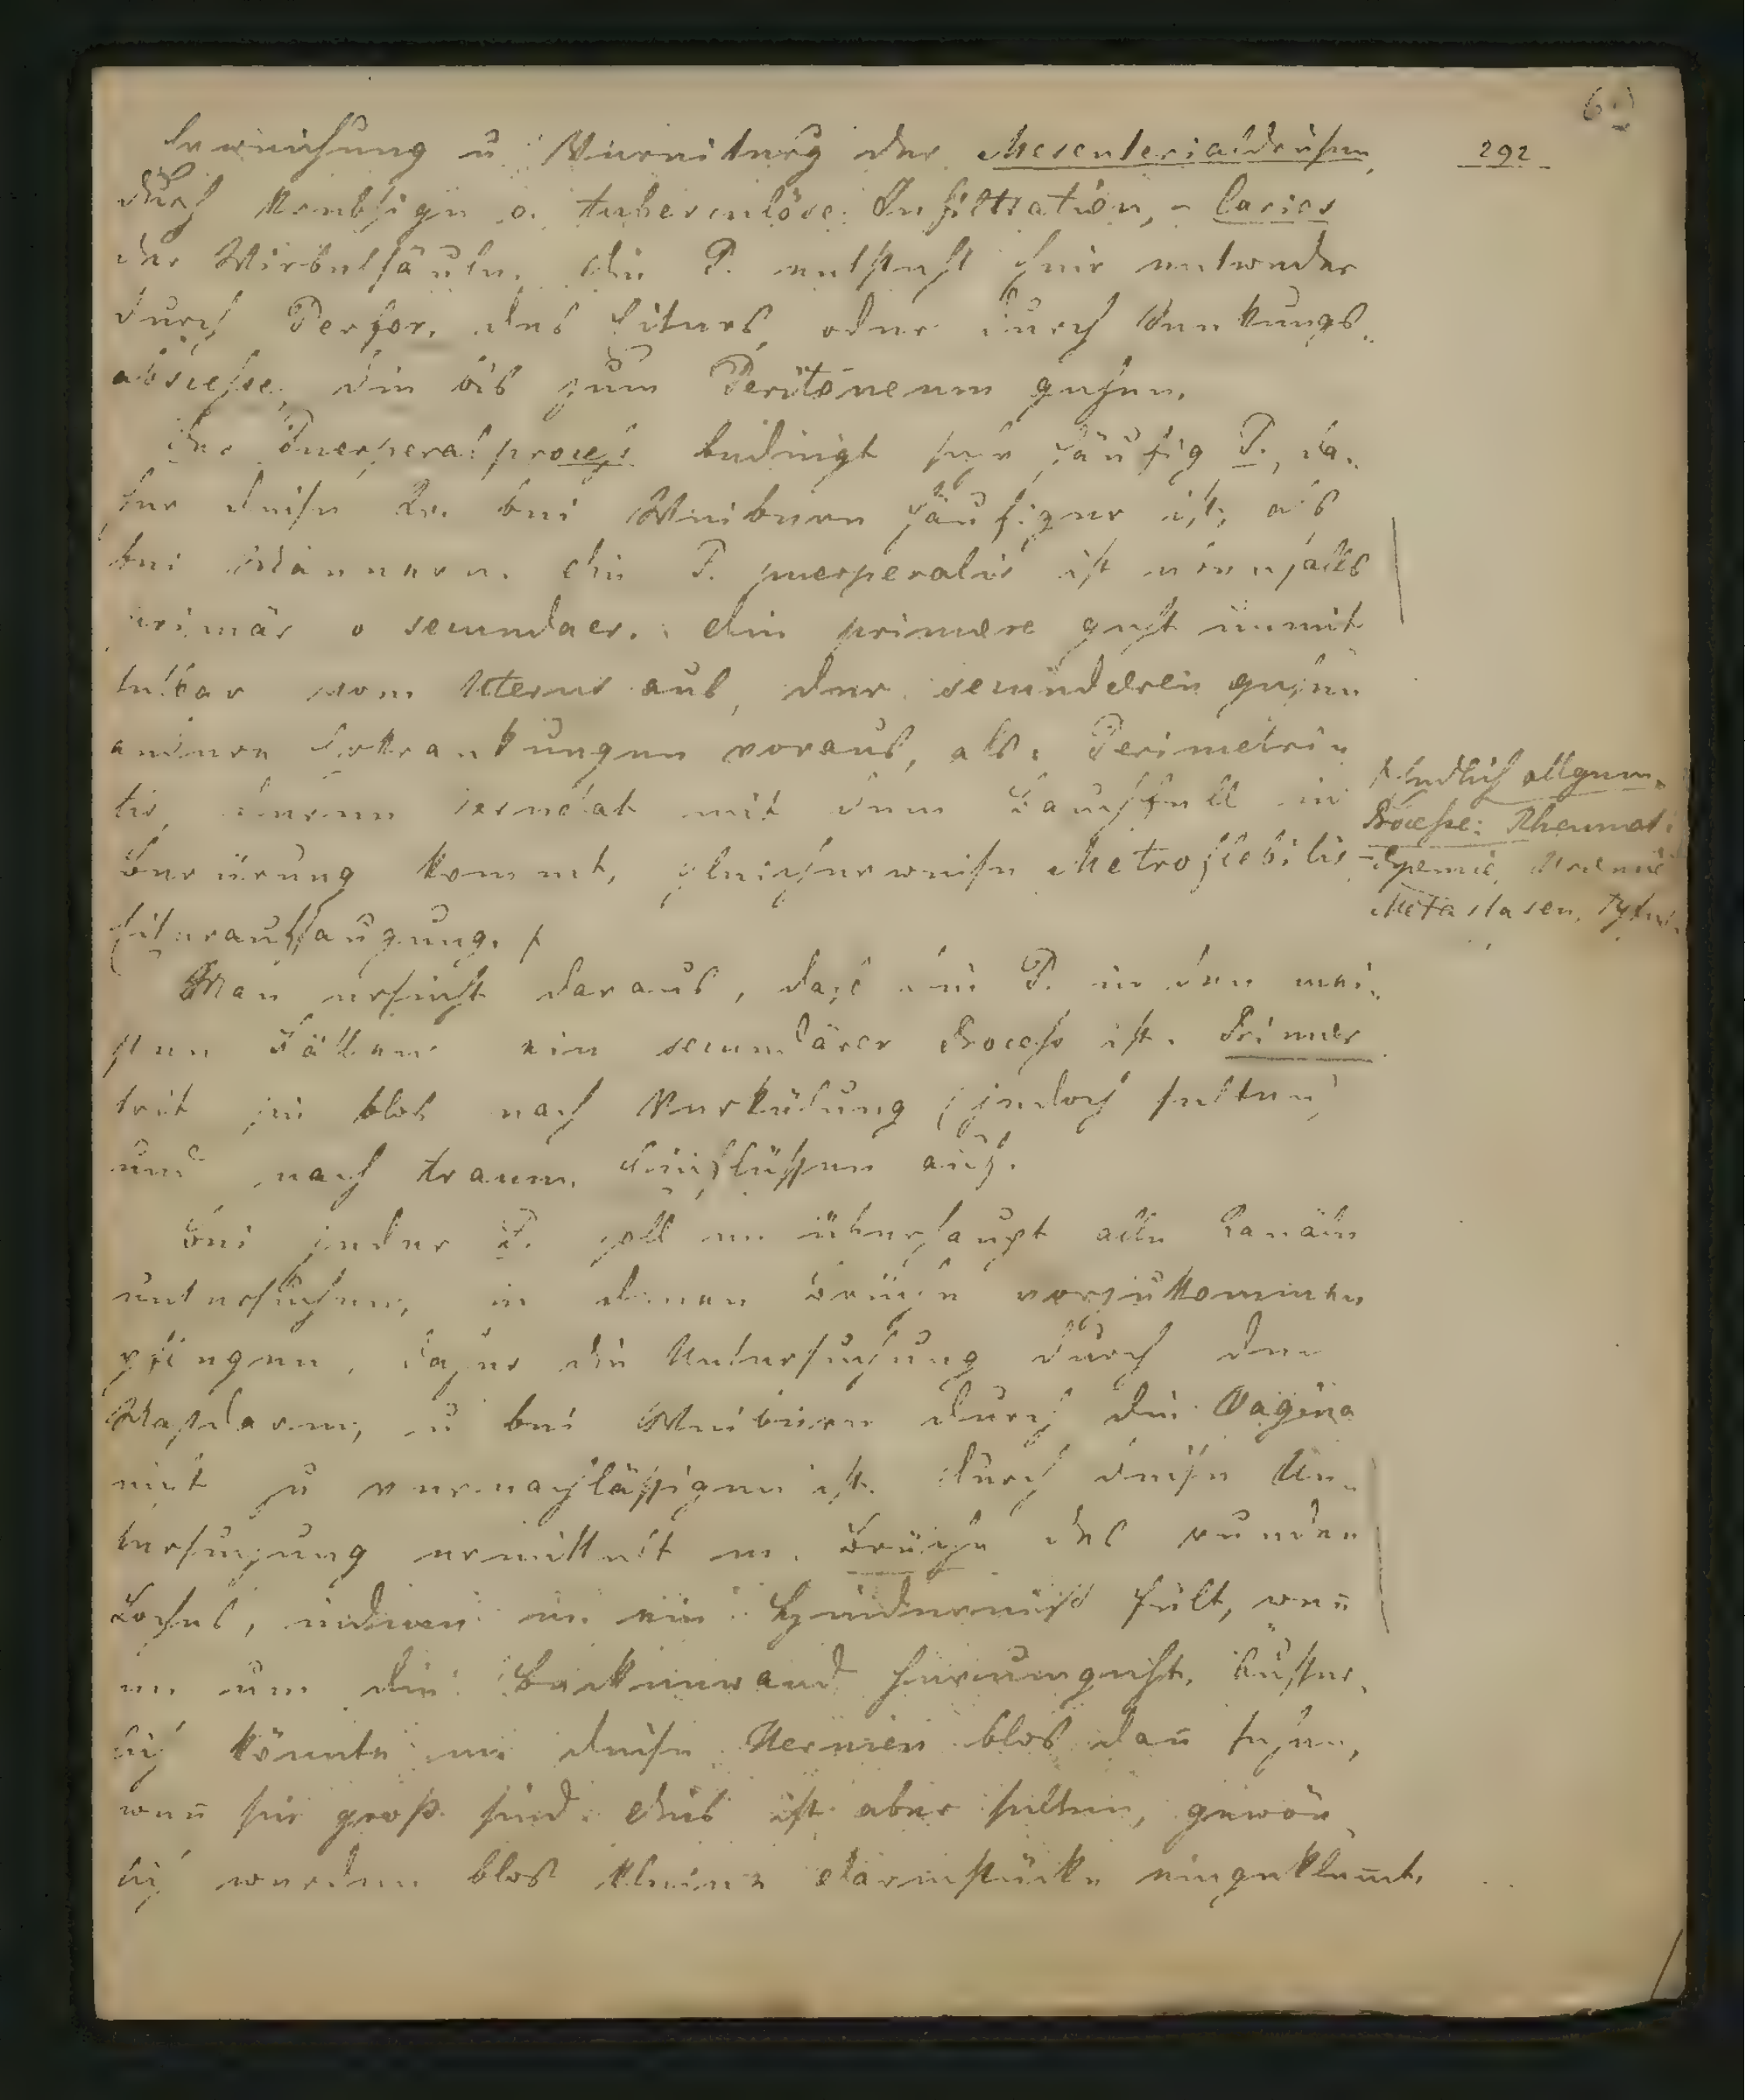 292
Erweichung u Vereiterug der Mesenterialdrüsen,
durch krebsige o. tuberculöse Infiltration, - Caries
der Wirbelsäule. Die P. entsteht hier entweder
durch Perfor. des Eiters oder durch Senkungs-
abscesse, die bis zum Peritoneum gehen.
Der Puerperalproceß bedingt sehr häufig P., da-
her diese Kr. bei Weibern häufiger ist, als
bei Männern. Die P. puerperalis ist ebenfalls
primär o secundaer. Die primaere geht unmit
telbar vom Uterus aus, der secundaeren gehen
andere Erkrankungen voraus, als: Perimetri
tis, deren Exsudat mit dem Bauchfell in
Berürung kommt, gleicherweise Metroflebitis -
Eiteraufsaugung. ⌿
⌿ Endlich allgem.
Processe: Rheumat.
Pyemie, Uraemie
Metastasen, Tyfus.
Man ersieht daraus, daß die P. in den mei-
sten Fällen ein secundärer Proceß ist. Primaer
trit sie blos nach Verkülung (jedoch selten)
und nach traum. Einflüssen auf.
Bei jeder P. soll m. überhaupt alle Kanäle
untersuchen, in denen Brüche vorzukommen
pflegen, daher die Untersuchung durch den
Mastdarm, u bei Weibern durch die Vagina
nicht zu vernachlässigen ist. Durch diese Un-
tersuchung ermittelt m. Brüche des runden
Loches, indem m ein Hinderniß fült, wen̄
m um die Beckenwand herumgeht. Äusser-
lich könnte m diese Hernien blos dan̄ sehen,
wen̄ sie groß sind. Dies ist aber selten, gewön
lich werden blos kleine Darmstücke eingeklem̄t.